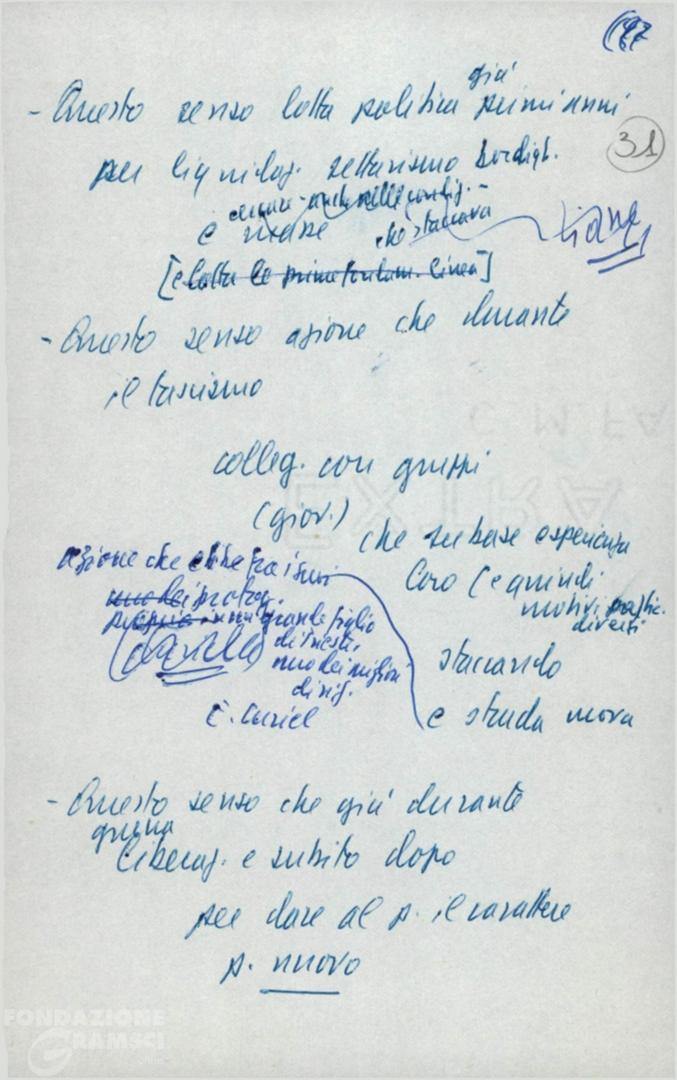 31
già
- Questo senso lotta politica primi anni
per liquidaz. settarismo bordigh.
che staccava
è
[e lotta la prima fondam. linea]
- Questo senso azione che durante
il fascismo
colleg. con gruppi
(giov.)
che su base esperienza
loro (e quindi
motivi partic.
diversi
staccando
e strada nuova
azione che ebbe fra i suoi
uno dei protag.
grande figlio
di Trieste,
uno dei migliori
dirig.
E. Curiel
- Questo senso che già durante
guerra
liberaz. e subito dopo
per dare al p. il carattere
p. nuovo
FONDAZIONE
GRAMSCI